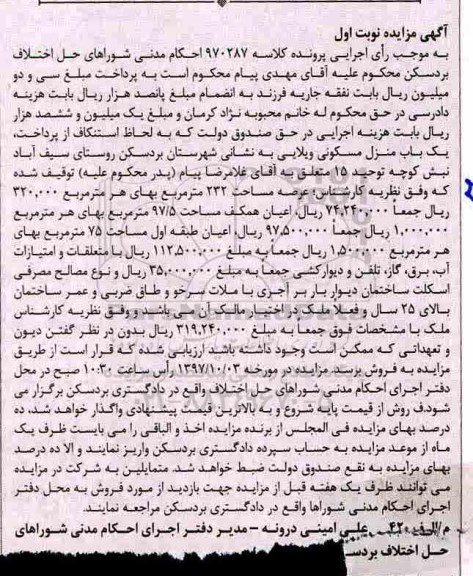 آگهی مزایده نوبت اول
به موجب رأی اجرایی پرونده کلاسه ۹۷۰۲۸۷ احکام مدنی شوراهای حل اختلاف
بردسکن محکوم علیه آقای مهدی پیام محکوم است به پرداخت مبلغ سی و دو
میلیون ریال بابت نفقه جاریه فرزند به انضمام مبلغ پانصد هزار ریال بابت هزینه
دادرسی در حق محکوم له خانم محبوبه نژاد کرمان و مبلغ یک میلیون و ششصد هزار
ریال بابت هزینه اجرایی در حق صندوق دولت که به لحاظ استنکاف از پرداخت،
یک باب منزل مسکونی ویلایی به نشانی شهرستان بردسکن روستای سیف آباد
نبش کوچه توحید ۱۵ متعلق به آقای غلامرضا پیام (پدر محکوم علیه) توقیف شده
که وفق نظریه کارشناس عرصه مساحت ۲۳۲ مترمربع بهای هر مترمربع ۳۲۰,۰۰۰
ریال جمعاً ۷۴,۲۴۰,۰۰۰ ریال، اعیان همکف مساحت ۹۷/۵ مترمربع بهای هر مترمربع
۱,۰۰۰,۰۰۰ ریال جمعاً ۹۷,۵۰۰,۰۰۰ ریال، اعیان طبقه اول مساحت ۷۵ مترمربع بهای
هر مترمربع ۱,۵۰۰,۰۰۰ ریال جمعاً به مبلغ ۱۱۲,۵۰۰,۰۰۰ ریال با متعلقات و امتیازات
آب، برق، گاز، تلفن و دیوارکشی جمعاً به مبلغ ۳۵,۰۰۰,۰۰۰ ریال و نوع مصالح مصرفی
اسکلت ساختمان دیوار بار بر آجری با ملات نرخو و طاق ضربی و عمر ساختمان
بالای ۲۵ سال و فعلا ملک در اختیار مالک آن می باشد و وفق نظریه کارشناس
ملک با مشخصات فوق جمعاً به مبلغ ۳۱۹,۲۴۰,۰۰۰ ریال بدون در نظر گفتن دیون
و تعهداتی که ممکن است وجود داشته باشد ارزیابی شده که قرار است از طریق
مزایده به فروش برسد. مزایده در مورخه ۱۳۹۷/۱۰/۰۳ رأس ساعت ۱۰:۳۰ صبح در محل
دفتر اجرای احکام مدنی شوراهای حل اختلاف واقع در دادگستری بردسکن برگزار می
شود.ف روش از قیمت پایه شروع و به بالاترین قیمت پیشنهادی واگذار خواهد شد، ده
درصد بهای مزایده فی المجلس از برنده مزایده اخذ و الباقی را می بایست ظرف یک
ماه از موعد مزایده به حساب سپرده دادگستری بردسکن واریز نمایند و الا ده درصد
بهای مزایده به نفع صندوق دولت ضبط خواهد شد. متمایلین به شرکت در مزایده
می توانند ظرف یک هفته قبل از مزایده جهت بازدید از مورد فروش به محل دفتر
اجرای احکام مدنی شوراها واقع در دادگستری بردسکن مراجعه نمایند.
م/الف ۴۲۰ علی امینی درونه - مدیر دفتر اجرای احکام مدنی شوراهای
حل اختلاف بردس